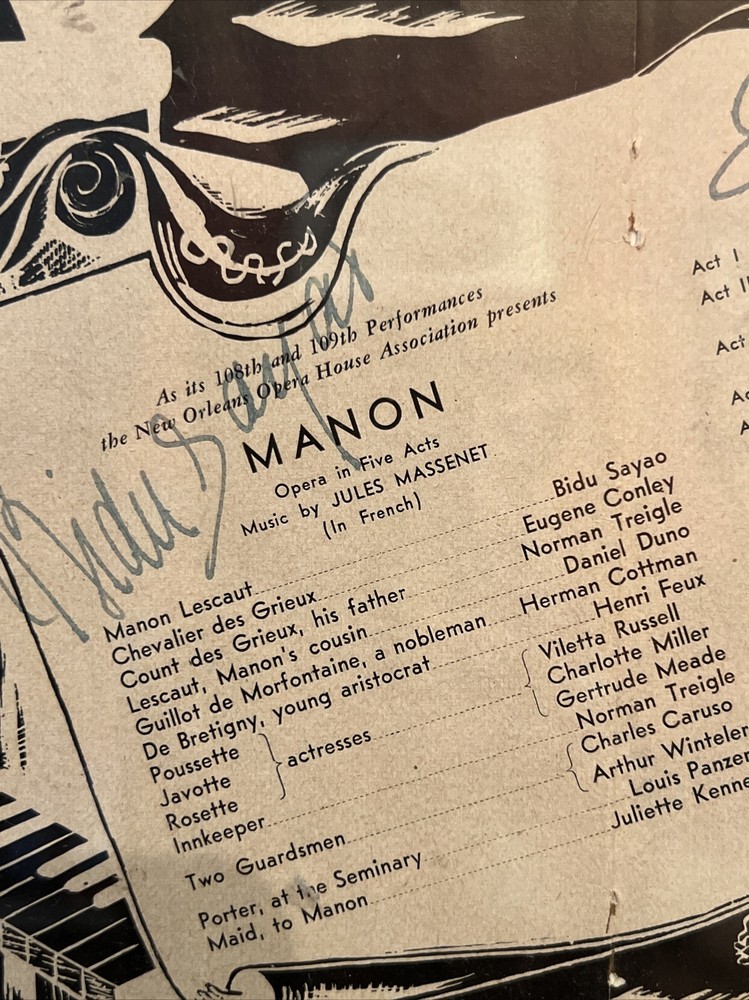 As its 108th and 109th Performances
the New Orleans Opera House Association presents
MANON
Opera in Five Acts
Music by JULES MASSENET
(In French)
Manon Lescaut Bidu Sayao
Chevalier des Grieux Eugene Conley
Count des Grieux, his father Norman Treigle
Lescaut, Manon's cousin Daniel Duno
Guillot de Morfontaine, a nobleman Herman Cottman
De Bretigny, young aristocrat Henri Feux
Poussette Viletta Russell
Javotte actresses Charlotte Miller
Rosette Gertrude Meade
Innkeeper Norman Treigle
Two Guardsmen Charles Caruso
Arthur Winteler
Porter, at the Seminary Louis Panzer
Maid, to Manon Juliette Kenne
Bidu Sayao
Act I
Act II
Act